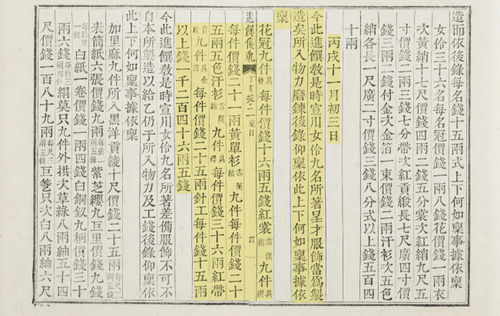 造而依後錄每名錢十五兩式上下何如稟事據依
稟
女伶三十六名每名冠價錢一兩八錢花價錢一兩衣
次黃綃十七尺價錢四兩二錢五分裳次紅綃九尺五
寸價錢二兩三錢七分帶次紅貢緞長七尺廣四寸價
錢三兩錢付金次金箔一束價錢二兩汗衫次五色
綃各長二尺廣一寸價錢三錢八分式以上錢五百四
十兩
丙戌十一月初三日
今此進饌教是時宣川女伶九名所著呈才服飾當爲製
造矣所入物力磨鍊後錄仰稟依此上下何如稟事據依
稟
卷二
花冠九件每件價錢十六兩五錢紅裳九件
每件價錢二十一兩黃單衫九件每件價錢二十
五兩五色汗衫九件每件價錢三十六兩紅帶
九件每件價錢二十五兩針工每件價錢十五兩
以上錢一千二百四十六兩五錢
今此進饌教是時宣川女伶九名所著差備服飾不可不
自本所製造以給乃仍于所入物力及工錢後錄仰稟依
此上下何如稟事據依稟
加里麻九件所入黑洋貢綾十尺價錢二十五兩
表簡紙六張價錢九兩紫芝纓九亘里價錢九錢
白紙一卷價錢一兩四錢白銅釵九柄價錢三十
兩六錢莫只九件外拱次草綠八兩紬五十四
尺價錢二百八十九兩只次白八兩紬六尺